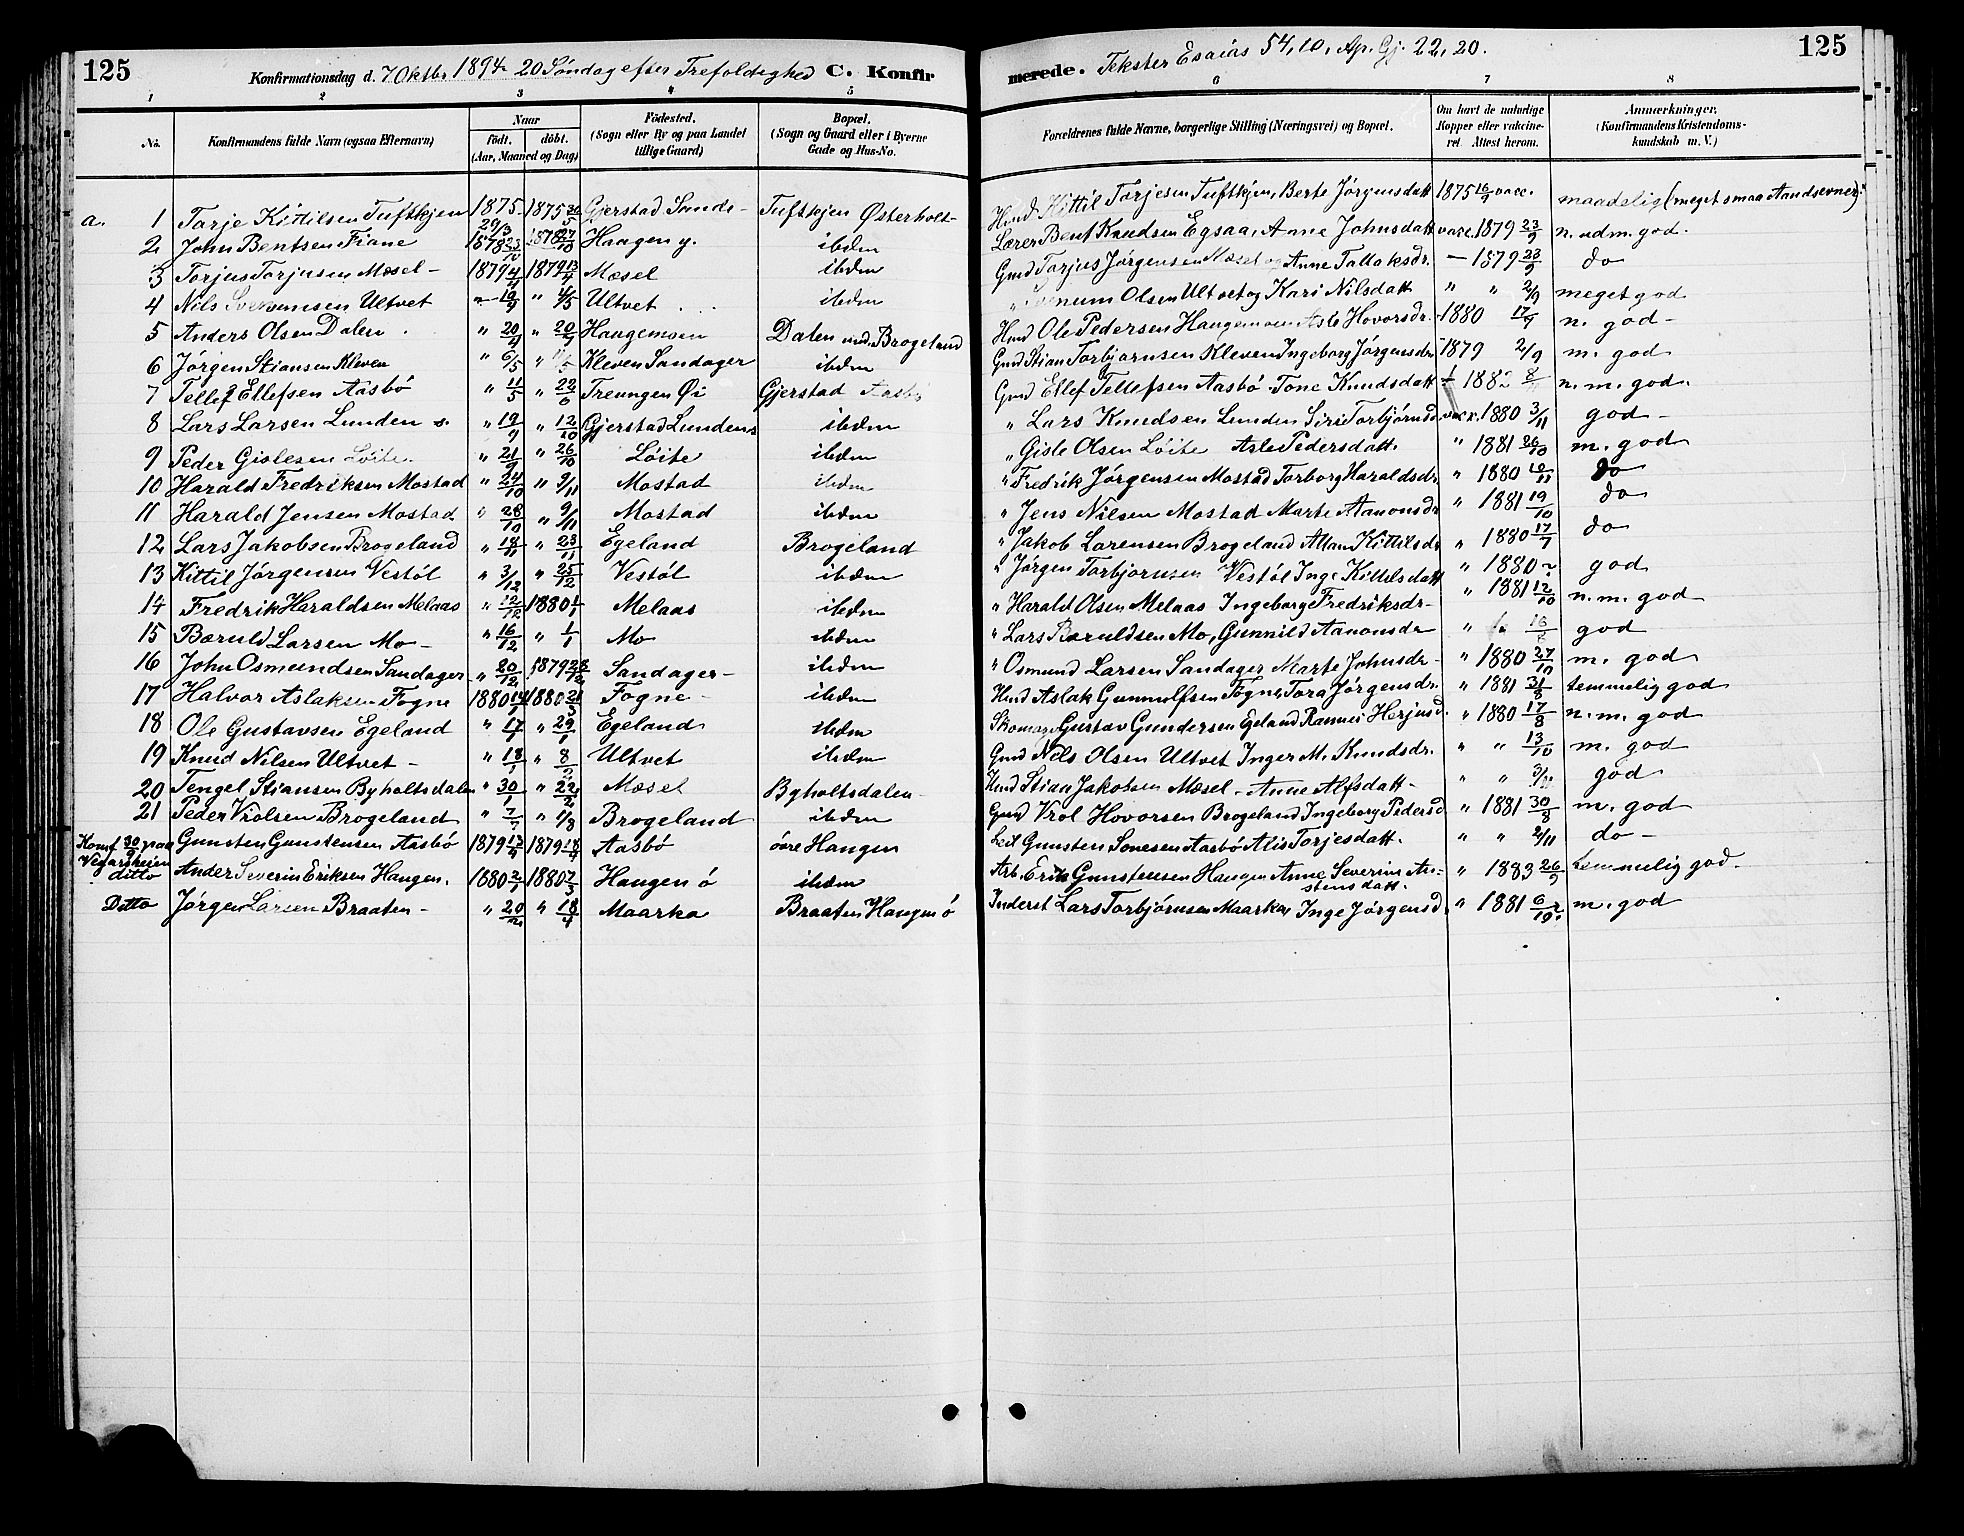 125 Konfirmationsdag d. 7 Oktbr 1894 20 Søndag efter Trefoldighed C. Konfir merede. Tekster Esaias 54,10, Ap. Gj. 22, 20. 125
1 2 3 4 5 6 7 8
No. Konfirmandens fulde Navn (ogsaa Efternavn) Naar födt. döbt. (Aar, Maaned og Dag) Födested. (Sogn eller By og paa Landet tillige Gaard) Bopæl. (Sogn og Gaard eller i Byerne Gade og Hus-No. Forældrenes fulde Navne, borgerlige Stilling (Næringsvei) og Bopæl. Om havt de naturlige Kopper eller vakcineret. Attest herom. Anmærkninger. (Konfirmandens Kristendomskundskab m. V.)
a. 1 Tarje Kittilsen Tuftkjen 1875 29/3 1875 Gjerstad Sande- Tuftkjen Østerholt- Hmd Kittil Torjesen Tuftkjen, Berte Jørgensdatt 1875 16/9 vacc. maadelig (meget smaa Aandsevner)
2 John Bentsen Fiane 1878 1878 27/10 Haugen y. ibidem Lærer Bent Knudsen Egsaa, Anne Johnsdatt vacc. 1879 23/9 n. udm. god.
3 Torjus Torjusen Mæsel- 1879 4/4 1879 13/4 Mæsel ibidem Gmd Torjus Jørgensen Mæsel og Anne Tallaksdr. - 1879 23/9 do
4 Nils Ultvet - 19/4 " 4/5 Ultvet ibidem " Olsen Ultvet og Kari Nilsdatt " " 2/9 meget god
5 Anders Olsen Dalen " 20/4 " Haugemoen Dalen und. Brogeland Hmd Ole Pedersen Haugemoen Asle Hovorsdr. - 1880 17/9 n. god-
6 Jørgen Stiansen Kleven " 6/5 " Kleven Sandager ibidem Gmd Stian Torbjørnsen Kleven Ingeborg Jørgensdr 1879 2/9 m. god
7 Tellef Ellefsen Aasbö " 11/5 " 22/6 Treungen Øi Gjerstad Aasbö Gmd Ellef Tellefsen Aasbö Tone Knudsdatt 1882 8/ n. m. god.
8 Lars Larsen Lunden s. " 19/9 " 12/10 Gjerstad Lunden s ibidem " Lars Knudsen Lunden Siri Torbjørnsd vacc. 1880 3/11 god-
9 Peder Gislesen Löite. " 21/9 " 26/10 Löite ibidem " Gisle Olsen Löite Asle Pedersdatt. " 1881 26/10 m. god
10 Harald Fredriksen Mostad " 24/10 " 9/11 Mostad ibidem " Fredrik Jørgensen Mostad Torborg Haraldsdr " 1880 do
11 Harald Jensen Mostad " 28/10 " 9/11 Mostad ibidem " Jens Nilsen Mostad Marte Aanonsdr " 1881 19/10 do
12 Lars Jakobsen Brogeland " 18/11 " 23/11 Egeland Brogeland " Jakob Larensen Brogeland Kittilsdr " 1880 17/7 do
13 Kittil Jörgensen Vestöl " 3/12 " 25/12 Vestöl ibidem " Jørgen Torbjørnsen Vestöl Inge Kittilsdatt " 1880 ? god
14 Fredrik Haraldsen Melaas " 12/12 1880 1/1 Melaas ibidem " Harald Olsen Melaas Ingeborg Fredriksdr- " 1881 12/10 n. m. god
15 Bæruld Larsen Mo- " 16/12 " 1/1 Mo ibidem " Lars Bæruldsen Mo, Gunnild Aanonsdr " god
16 John Osmundsen Sandager " 20/12 1879 28/12 Sandager- ibidem " Osmund Larsen Sandager Marte Johnsdr- " 1880 27/10 m. god
17 Halvor Aslaksen Fogne 1880 1880 21/3 Fogne- ibidem Hmd Aslak Gunnulfsen Fogne, Tora Jørgensdr. " 1881 31/8 temmelig god
18 Ole Gustavsen Egeland " 17/1 " 29/1 Egeland ibidem Skomager Gustav Gundersen Egeland Herjusd. " 1880 17/8 n. m. god
19 Knud Nilsen Ultvet- " 18/1 " 8/2 Ultvet ibidem Gmd Nils Olsen Ultvet Inger M. Knudsdr. " " 13/10 m. god
20 Tengel Stiansen Byholtsdalen " 30/1 " 22/2 Mæsel Byholtsdalen- Hmd Stian Jakobsen Mæsel- Anne Alfsdatt- " " god
21 Peder Vrolsen Brogeland " 7/7 " 1/8 Brogeland ibidem Gmd Vrol Hovorsen Brogeland Ingeborg Pedersd. " 1881 30/8 m. god
Konf 30/9 paa Vegarsheien Gunsten Gunstensen Aasbö 1879 1879 Aasbö övre Haugen Gunsten Sonesen Aasbö Alis Torjesdatt. " " 2/11 do-
ditto Ander Severin Eriksen Haugen. 1880 2/1 1880 7/3 Haugen ö ibidem Arb. Erik Gunstensen Haugen Anne Severine Austensdatt. " 1883 26/9 temmelig god.
Ditto Jørgen Larsen Braaten- " 20/2 " 18/4 Maarka Braaten Haugen ö Inderst Lars Torbjørnsen Maarka Inge Jørgensd. " 1881 m. god